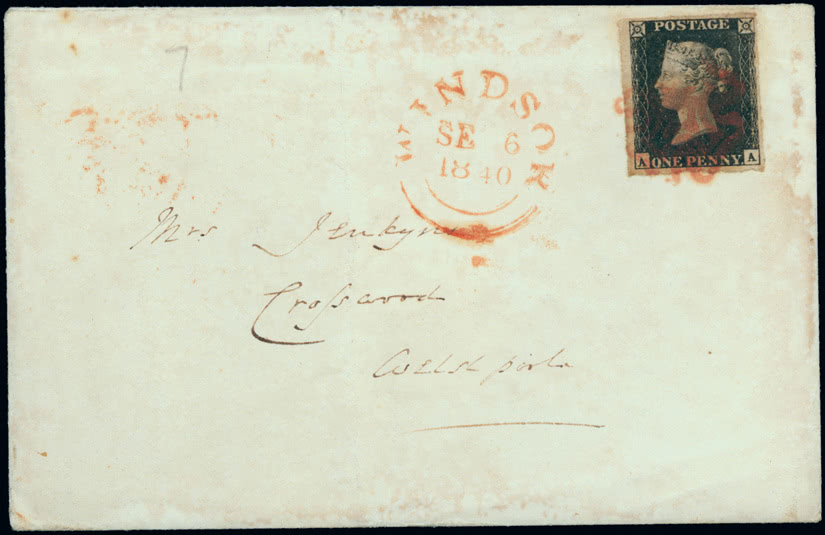 7
POSTAGE
A ONE PENNY A
WINDSOR
SE 6
1840
Mrs Jenkyns
Crosswood
Welsh pool